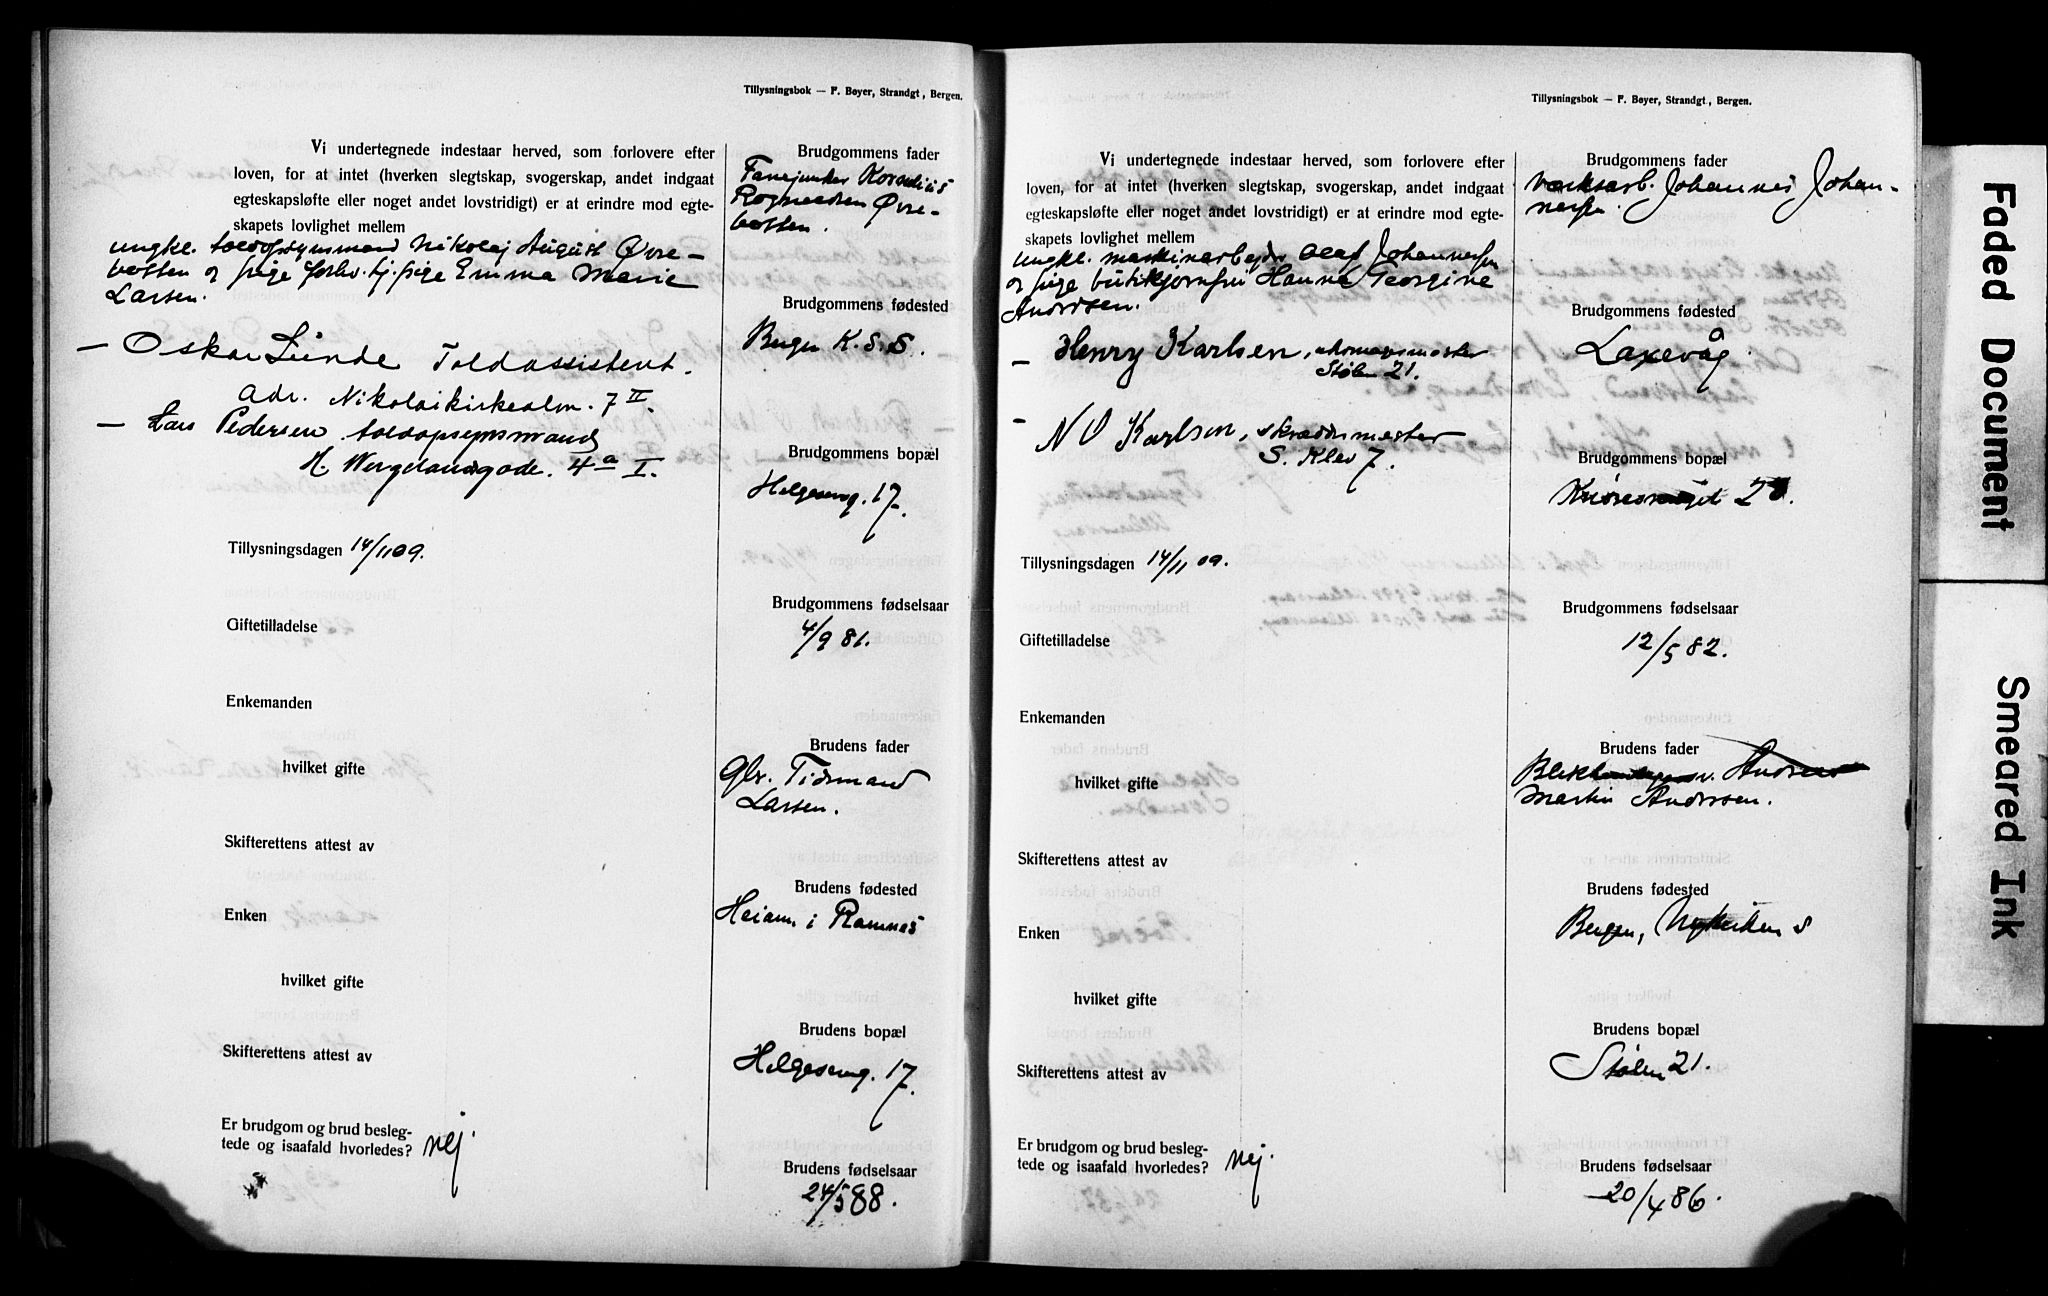 Tillysningsbok — F. Bøyer, Strandgt, Bergen.
Vi undertegnede indestaar herved, som forlovere efter
loven, for at intet (hverken slegtskap, svogerskap, andet indgaat
egteskapsløfte eller noget andet lovstridigt) er at erindre mod egte-
skapets lovlighet mellem
ungk. toldopsynsmand Nikolaj August Øvre-
botten og pige forhv. tj.pige Emma Marie
Larsen.
— Oskar Lunde Toldassistent.
adr. Nikolaikirkealm. 7 II.
— Lars Pedersen toldopsynsmand
H. Wergelandsgade. 4a I.
Tillysningsdagen 14/11 09.
Giftetilladelse
Enkemanden
hvilket gifte
Skifterettens attest av
Enken
hvilket gifte
Skifterettens attest av
Er brudgom og brud besleg-
tede og isaafald hvorledes? nej.
Brudgommens fader
Fanejunker Kornelius
Rognaldsen Øvre-
botten.
Brudgommens fødested
Bergen K. S. S.
Brudgommens bopæl
Helgesensg. 17.
Brudgommens fødselsaar
4/9 81.
Brudens fader
Gbr. Tidemand
Larsen.
Brudens fødested
i Ramnæs
Brudens bopæl
Helgesensg. 17.
Brudens fødselsaar
24/5 88.
Tillysningsbok — F. Bøyer, Strandgt, Bergen.
Vi undertegnede indestaar herved, som forlovere efter
loven, for at intet (hverken slegtskap, svogerskap, andet indgaat
egteskapsløfte eller noget andet lovstridigt) er at erindre mod egte-
skapets lovlighet mellem
ungk. maskinarbejder Olaf Johannessen
og pige butikjomfru Hanna Georgine
Andersen.
— Henry Karlsen,
Stølen 21.
— N O Karlsen, skræddermester
S. Klev 7.
Tillysningsdagen 14/11 09.
Giftetilladelse
Enkemanden
hvilket gifte
Skifterettens attest av
Enken
hvilket gifte
Skifterettens attest av
Er brudgom og brud besleg-
tede og isaafald hvorledes? nej.
Brudgommens fader
Verksarb. Johannes Johan-
nessen.
Brudgommens fødested
Laxevåg
Brudgommens bopæl
Brudgommens fødselsaar
12/5 82.
Brudens fader
Martin Andersen.
Brudens fødested
Bergen, Nykirken S
Brudens bopæl
Stølen 21.
Brudens fødselsaar
20/4 86.
Faded Document
Smeared Ink